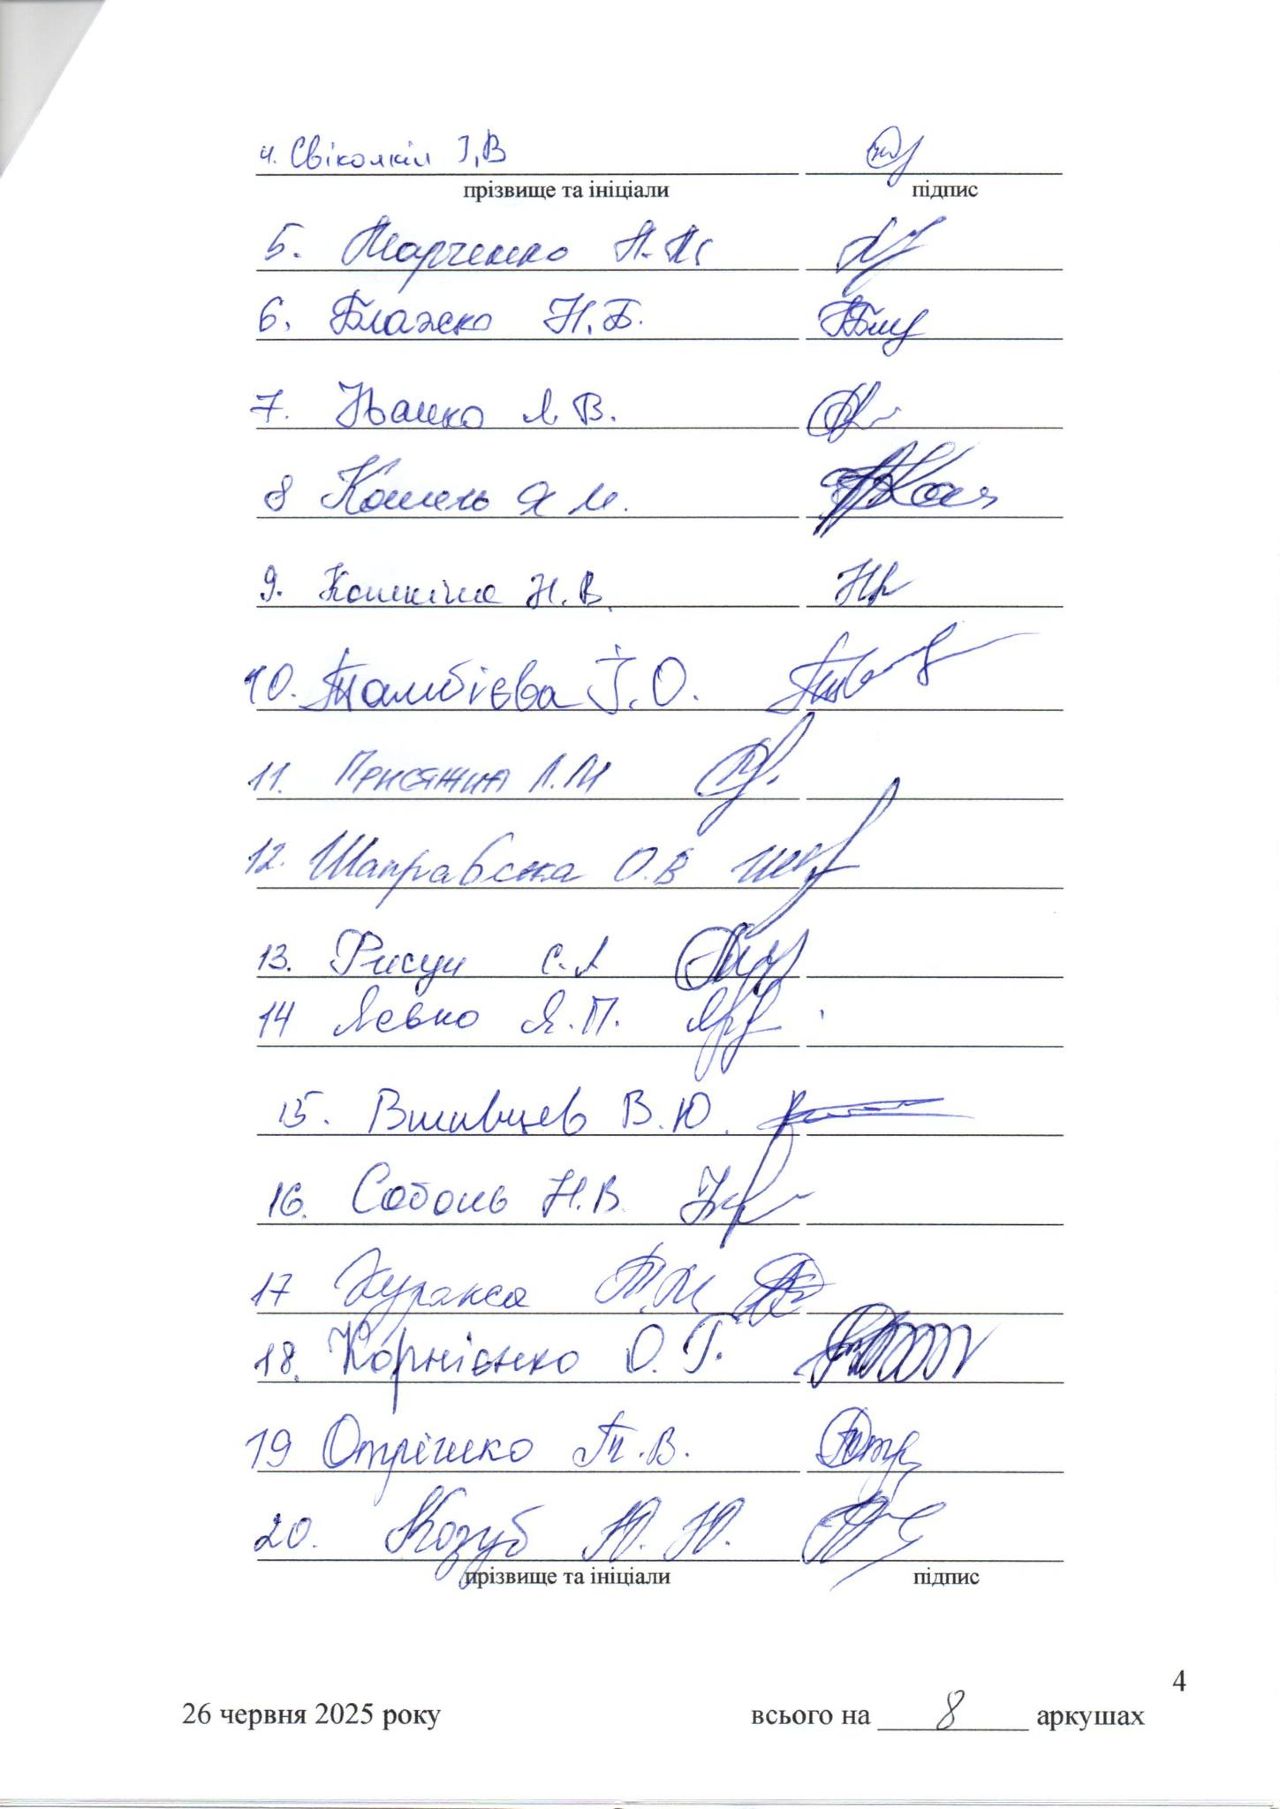 4. І,В
прізвище та ініціали підпис
5. Марченко
6. Блажко Н.Б.
7. В.
8 Кошель Я М.
9. Кошкіна Н.В.
10. Тамбієва І.О.
11. Присяжна Л.М
12. Шаправська О.В
13. Рисун С.А
14 Левко Я.П.
15. Вшивцев В.Ю.
16. Соболь Н.В.
17 Т.М
18. Корнієнко О.Г.
19 Отрішко Т.В.
20. Козуб Ю.Ю.
прізвище та ініціали підпис
4
26 червня 2025 року всього на 8 аркушах